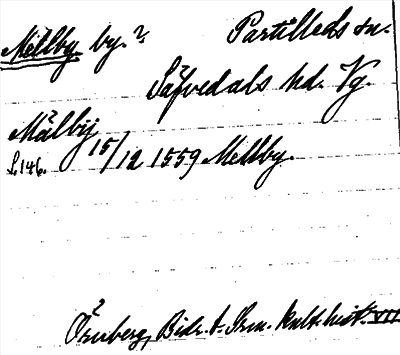 Mellby by. ? Partilleds sn.
Säfvedals hd. Vg.
Målbij
s. 146. 15/12 1559 Mellby.
Örnberg, Bidr. t. Svn. kult. hist. VII